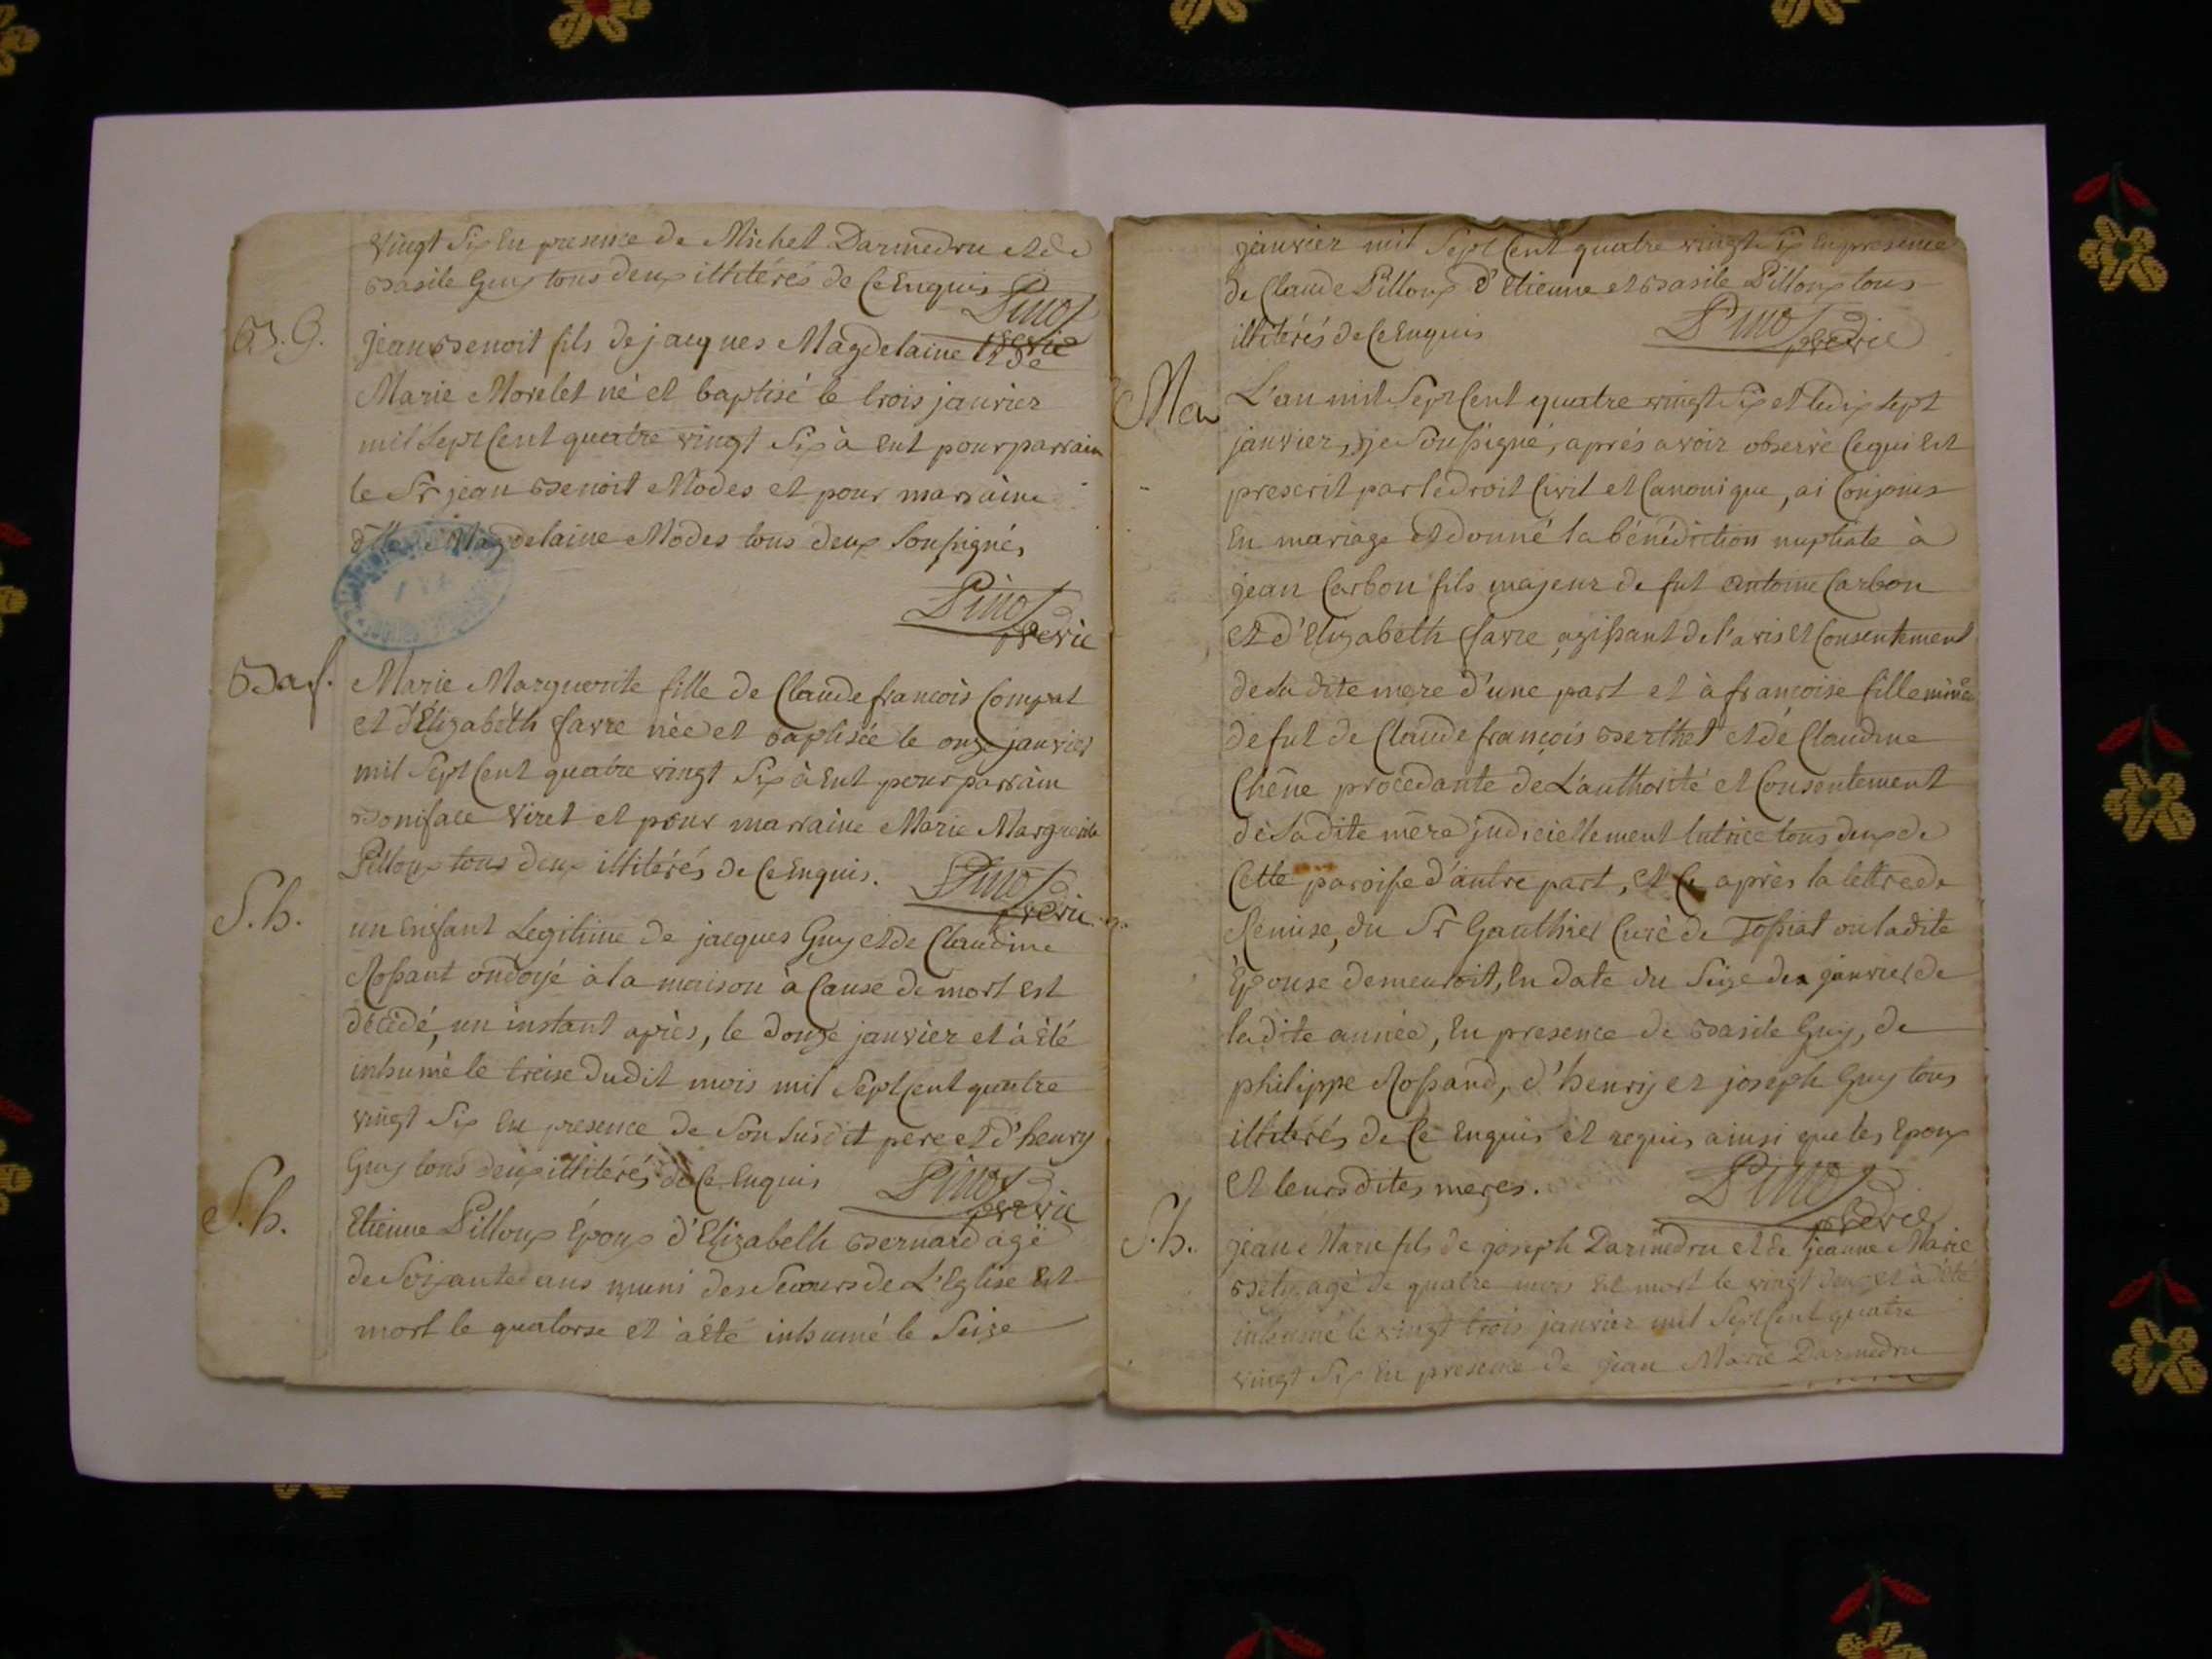 vingt six en presence de Michel Darmedru et de
Basile Guy tous deux illitérés de ce enquis
Pinot
previc
B. G.
jean Benoit fils de jacques Magdelaine et de
Marie Morelet né et baptisé le trois janvier
mil sept cent quatre vingt six à eut pour parrain
le Sr jean Benoit Modes et pour marraine
dlle Magdelaine Modes tous deux soussignés
Pinot
previc
Ba f.
Marie Marguerite fille de Claude francois Compat
et d'Elizabéth favre née et baptisée le onze janvier
mil sept cent quatre vingt six à eut pour parrain
Boniface Viret et pour marraine Marie Marguerite
Pilloux tous deux illitérés de ce enquis.
Pinot
previc
S. h.
un enfant Legitime de jacques Guy et de Claudine
Rossant ondoyé à la maison à cause de mort est
décédé, un instant après, le douze janvier et à été
inhumé le treise dudit mois mil sept cent quatre
vingt six en presence de son susdit pere et d'henry
Guy tous deux illitérés de ce enquis
Pinot
previc
S. h.
Etienne Pilloux époux d'Elizabelh Bernard agé
de soixante ans muni des secours de L'Eglise est
mort le quatorse et à été inhumé le seize
janvier mil sept cent quatre vingt six en presence
de Claude Pilloux d'Etienne et Basile Pilloux tous
illitérés de ce enquis
Pinot
previc
Ma
L'an mil sept cent quatre vingt six et le dix sept
janvier, je soussigné, aprés avoir observé ce qui est
prescrit par le droit civil et canonique, ai conjoins
en mariage et donné la bénédiction nuptiale à
jean Carbon fils majeur de fut antoine Carbon
et d'Elizabéth favre, agissant de l'avis et consentement
de sa dite mere d'une part et à francoise fille
de fut de Claude francois Berthet et de Claudine
Chêne procedante de L'authorité et consentement
de sa dite mère judiciellement tutrice tous deux de
cette paroisse d'autre part, et ce après la lettre de
Remise, du Sr Gauthier Curé de Tossiat ou ladite
épouse demeuroit, en date du seize de janvier de
ladite année, en presence de Basile Guy, de
philippe Rossand, d'henry et joseph Guy tous
illiterés de ce enquis et requis ainsi que les epoux
et leursdites meres.
Pinot
previc
S. h.
jean Marie fils de joseph Darmedru et de jeanne Marie
agé de quatre mois est mort le vingt deux et à été
inhumé le vingt trois janvier mil sept cent quatre
vingt six en presence de jean Marie Darmedru